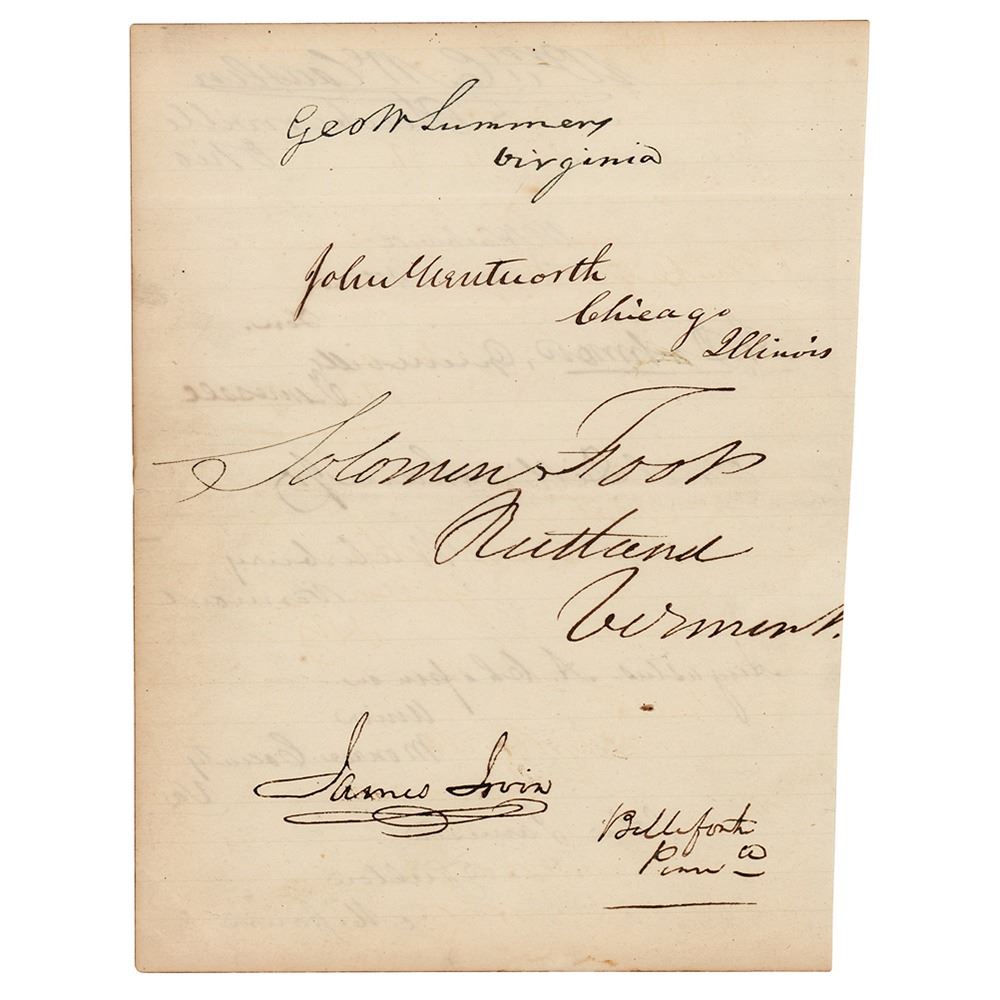 Geo W Summers
Virginia
John Wentworth
Chicago
Illinois
Solomon Foot
Rutland
Vermont.
James Irvin
Bellefonte
Penna